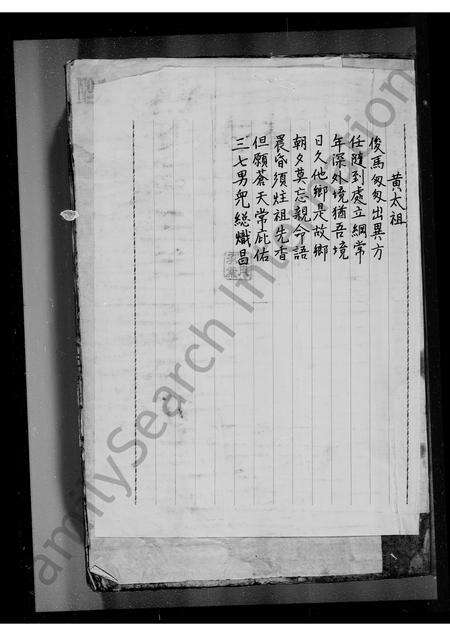 黄太祖
俊馬匆匆出異方
任隨到處立綱常
年深外境猶吾境
日久他鄉是故鄉
朝夕莫忘親命語
晨昏須炷祖先香
但願蒼天常庇佑
三七男兒総熾昌
FamilySearch International